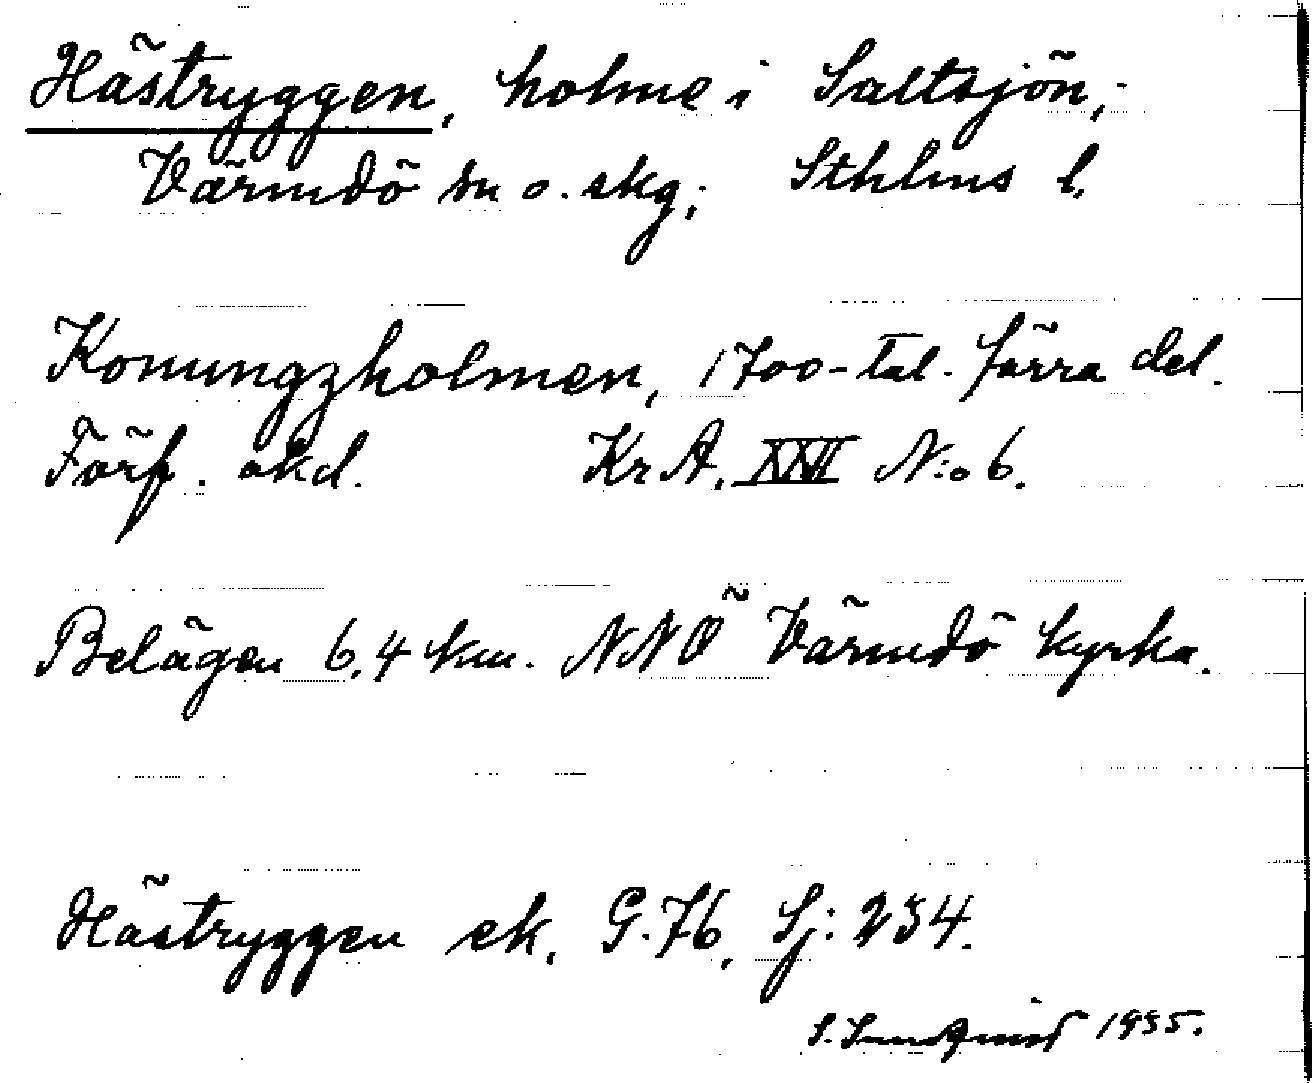 Hästryggen, holme i Saltsjön,
Värmdö sn o. skg; Sthlms l.
Konungzholmen, 1700-tal. förra del.
Förf. okd. Kr A. XXII N:o 6.
Belägen 6,4 km. NNÖ Värmdö kyrka.
Hästryggen ek. G.76, Sj: 234.
S. 1935.